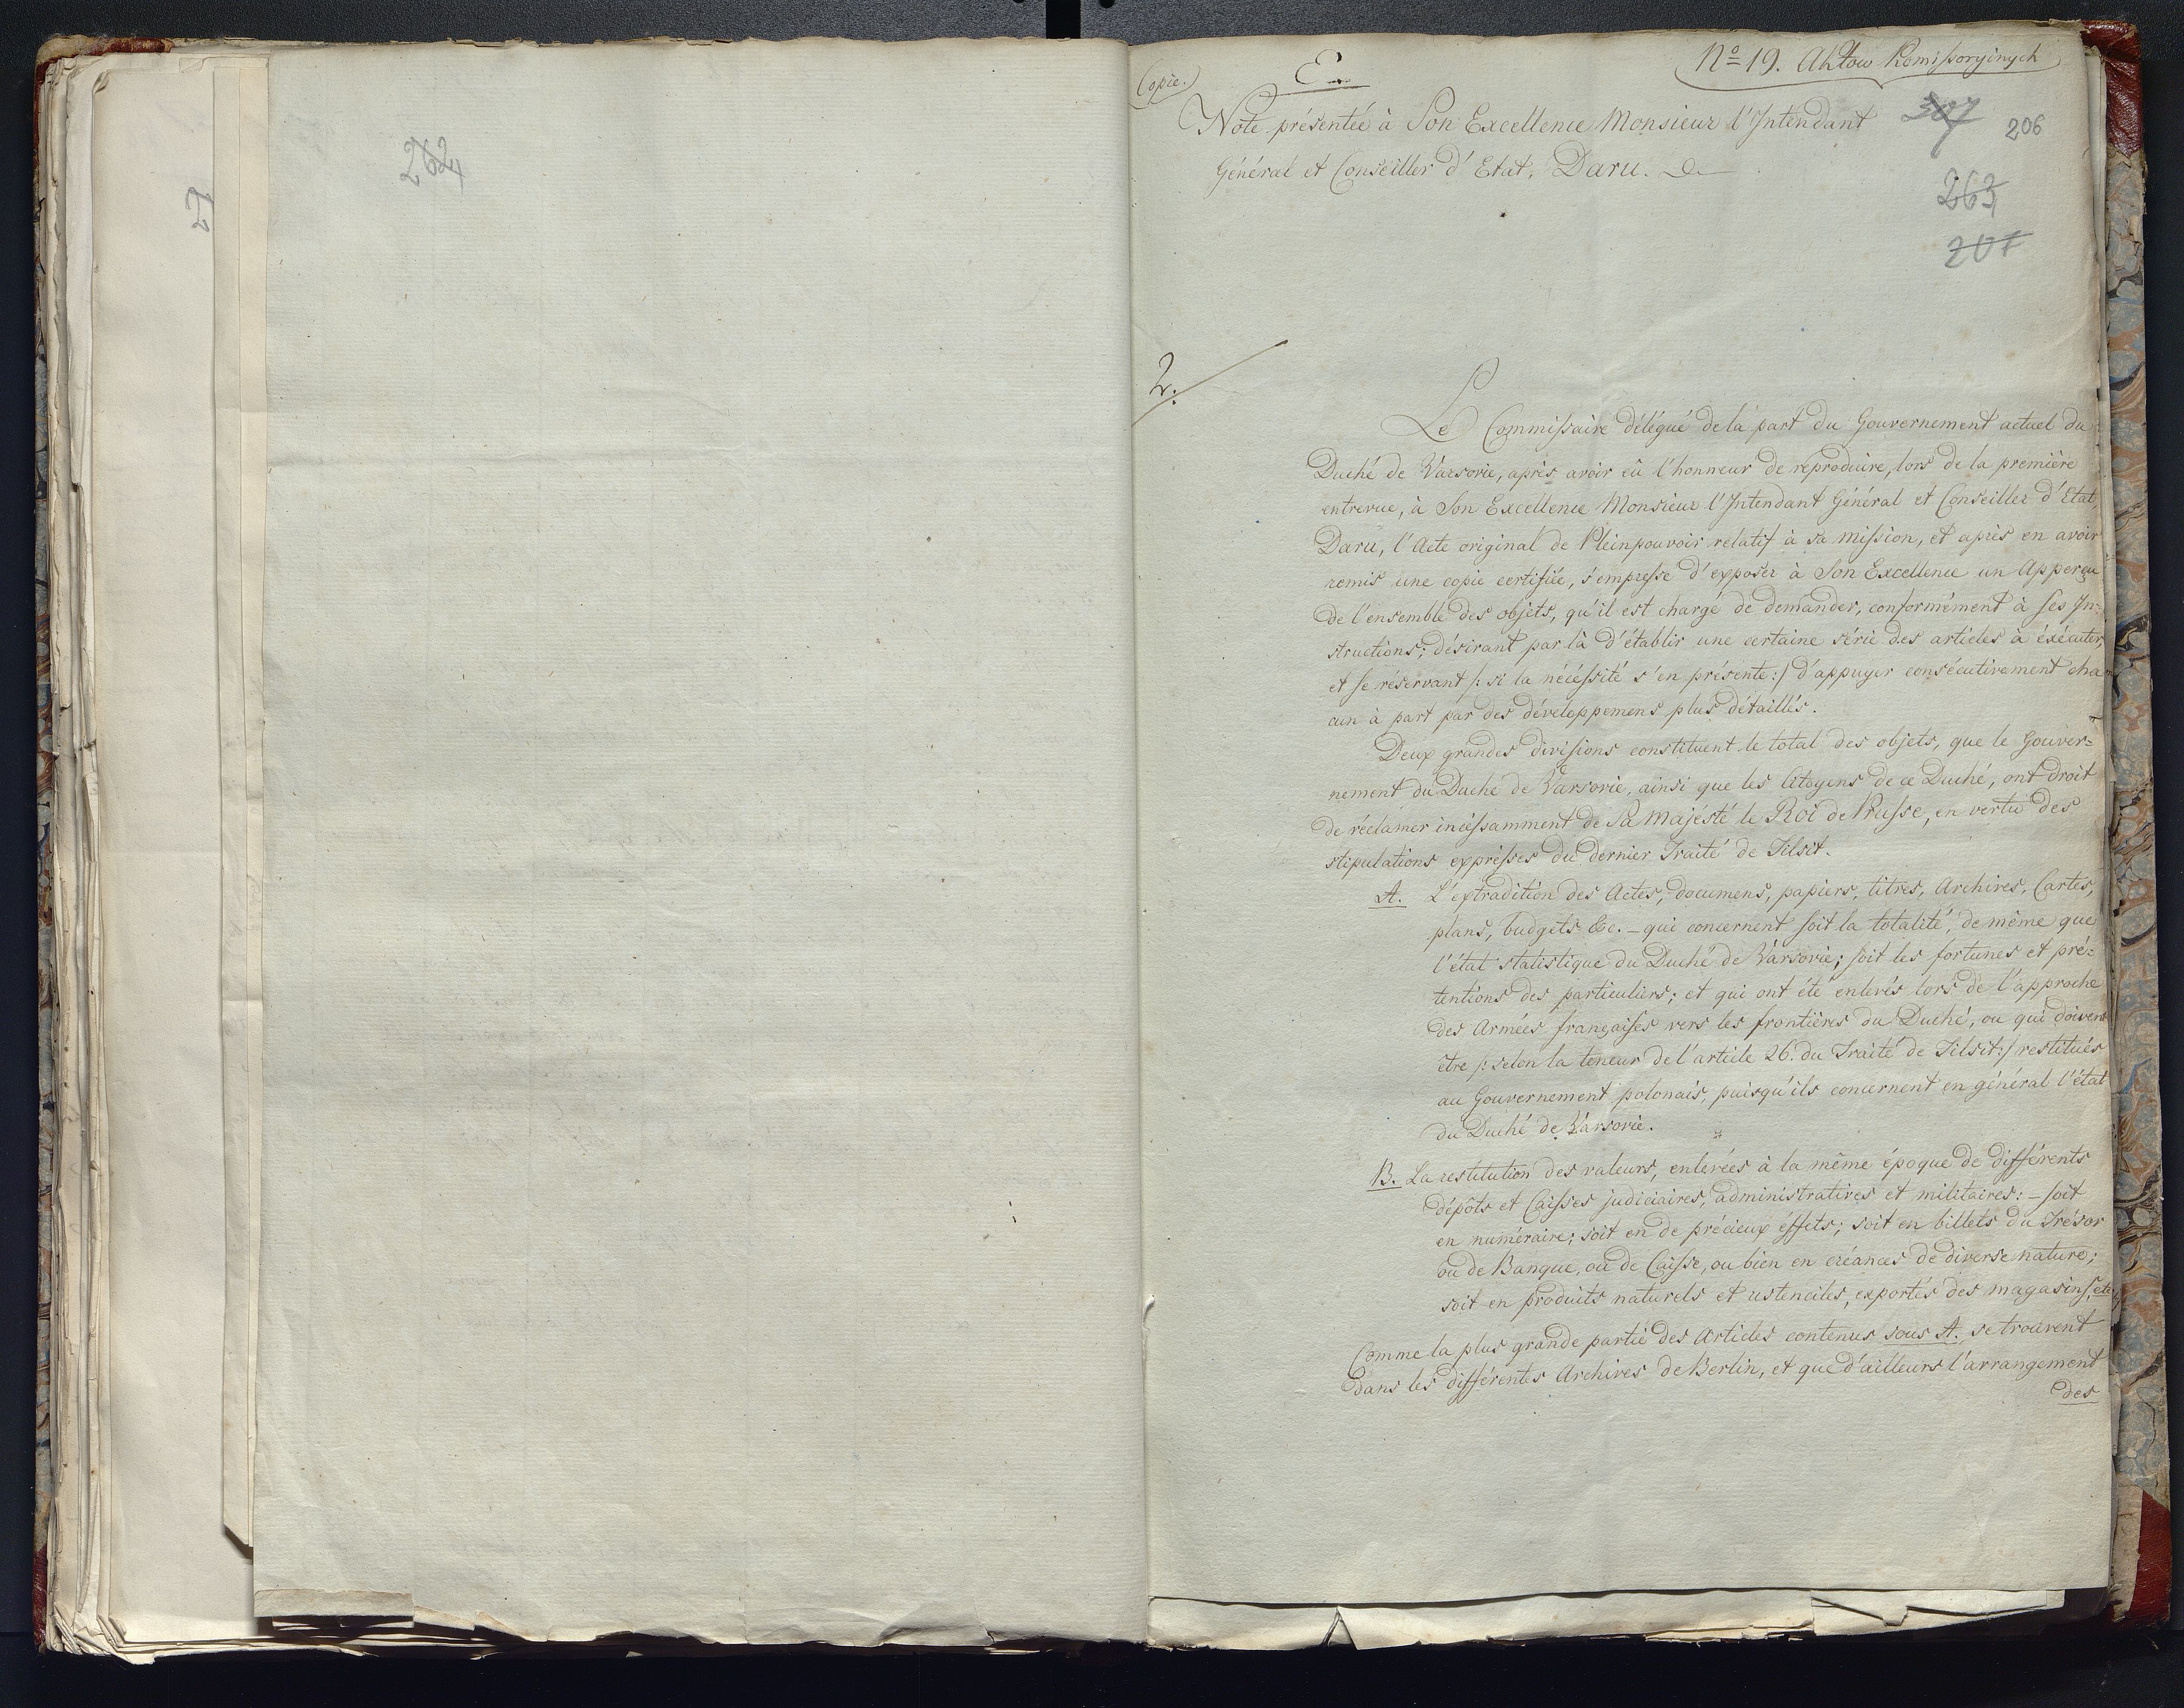 264
27
Copie.
E
Nº 19. Aktow Komissoryinych
Note présentée à Son Excellence Monsieur l'Intendant
307
206
Général et Conseiller d'Etat, Daru.
263
207
2.
Le Commissaire délégué de la part du Gouvernement actuel du
Duché de Varsovie, après avoir eû l'honneur de réproduire, lors de la première
entrevue, à Son Excellence Monsieur l'Intendant Général et Conseiller d'Etat,
Daru, l'Acte original de Pleinpouvoir relatif à sa mission, et après en avoir
remis une copie certifiée, s'empresse d'exposer à Son Excellence un Apperçu
de l'ensemble des objets, qu'il est chargé de demander, conformément à ses In-
structions; désirant par là d'établir une certaine série des articles à éxécuter,
et se réservant /: si la nécéssité s'en présente :/ d'appuyer consécutivement cha
cun à part par des développemens plus détaillés.
Deux grandes divisions constituent le total des objets, que le Gouver=
nement du Duché de Varsovie, ainsi que les Citoyens de ce Duché, ont droit
de réclamer incéssamment de Sa Majésté le Roi de Prusse, en vertu des
stipulations expresses du dernier Traité de Tilsit.
A. L'extradition des Actes, documens, papiers, titres, Archives, Cartes,
plans, budgets &c. - qui concernent soit la totalité, de même que
l'état statistique du Duché de Varsovie; soit les fortunes et pré=
tentions des particuliers; et qui ont été enlevés lors de l'approche
des Armées françaises vers les frontières du Duché, ou qui doivent
etre /: selon la teneur de l'article 26. du Traité de Tilsit :/ restitués
au Gouvernement polonais, puisqu'ils concernent en général l'état
du Duché de Varsovie.
B. La restitution des valeurs, enlevées à la même époque de différents
dépôts et Caisses judiciaires, administratives et militaires: - soit
en numéraire; soit en de précieux éffets; soit en billets du Trésor
ou de Banque, ou de Caisse, ou bien en créances de diverse nature;
soit en produits naturels et ustenciles, exportés des magasins, etc
Comme la plus grande partie des Articles contenus sous A. se trouvent
dans les différentes Archives de Berlin, et que d'ailleurs l'arrangement
des